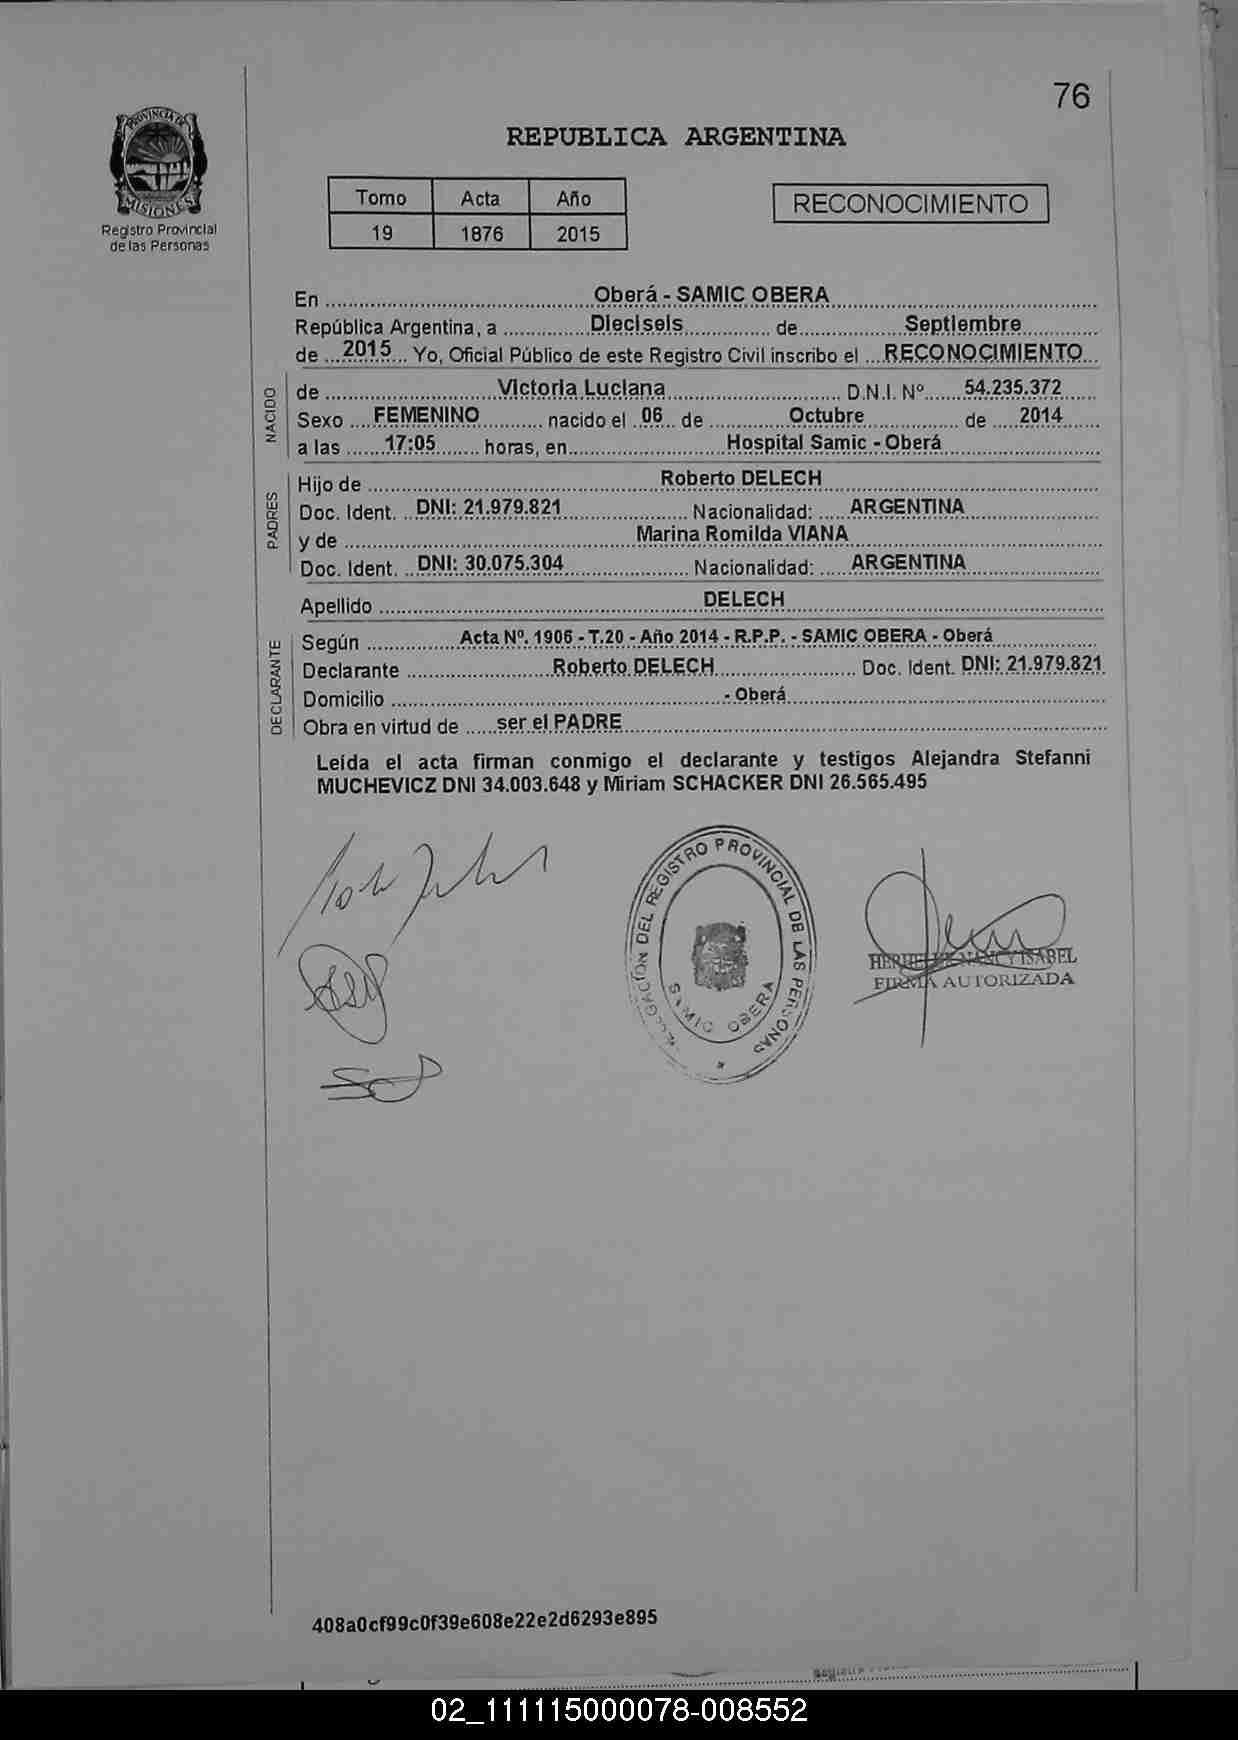 76
PROVINCIA DE
MISIONES
Registro Provincial
de las Personas
REPUBLICA ARGENTINA
Tomo Acta Año
19 1876 2015
RECONOCIMIENTO
En Oberá - SAMIC OBERA
República Argentina, a Dieciseis de Septiembre
de 2015 Yo, Oficial Público de este Registro Civil inscribo el RECONOCIMIENTO
NACIDO
de Victoria Luciana D.N.I. Nº 54.235.372
Sexo FEMENINO nacido el 06 de Octubre de 2014
a las 17:05 horas, en Hospital Samic - Oberá
PADRES
Hijo de Roberto DELECH
Doc. Ident. DNI: 21.979.821 Nacionalidad: ARGENTINA
y de Marina Romilda VIANA
Doc. Ident. DNI: 30.075.304 Nacionalidad: ARGENTINA
Apellido DELECH
DECLARANTE
Según Acta Nº. 1906 - T.20 - Año 2014 - R.P.P. - SAMIC OBERA - Oberá
Declarante Roberto DELECH Doc. Ident. DNI: 21.979.821
Domicilio - Oberá
Obra en virtud de ser el PADRE
Leída el acta firman conmigo el declarante y testigos Alejandra Stefanni
MUCHEVICZ DNI 34.003.648 y Miriam SCHACKER DNI 26.565.495
DELEGACION DEL REGISTRO PROVINCIAL DE LAS PERSONAS
SAMIC OBERA
NANCY ISABEL
FIRMA AUTORIZADA
408a0cf99c0f39e608e22e2d6293e895
02_111115000078-008552